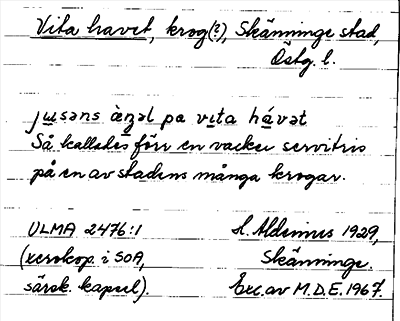 Vita havet, krog(?), Skänninge stad,
Östg. l.
jusəns ä̀ŋəl pa vita hávət
Så kallades förr en vacker servitris
på en av stadens många krogar.
ULMA 2476:1 H. Aldinius 1929,
(xerokop. i SOA, Skänninge.
särsk. kapsel). Exc. av M.D.E. 1967.